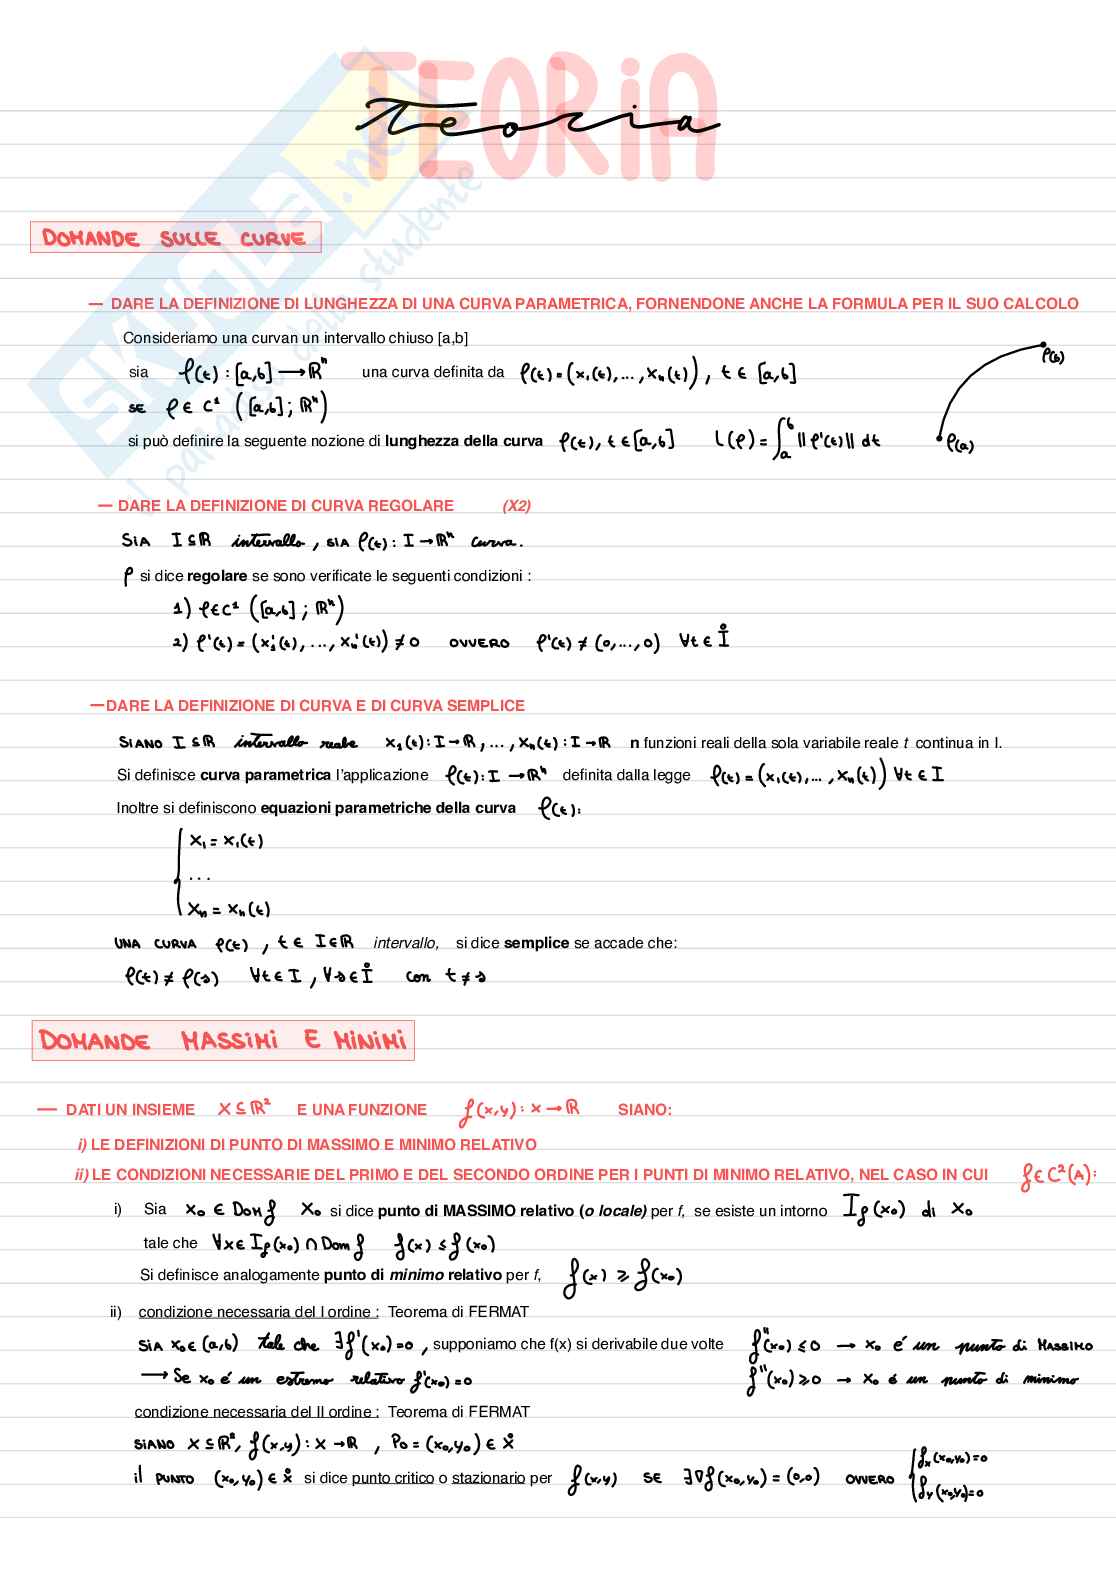 TEORIA
Teoria
SKUOLA.net
il paradiso dello studente
DOMANDE SULLE CURVE
— DARE LA DEFINIZIONE DI LUNGHEZZA DI UNA CURVA PARAMETRICA, FORNENDONE ANCHE LA FORMULA PER IL SUO CALCOLO
Consideriamo una curvan un intervallo chiuso [a,b]
sia φ(t) : [a,b] → ℝⁿ una curva definita da φ(t) = (x₁(t), ..., xₙ(t)), t ∈ [a,b]
SE φ ∈ C¹ ([a,b]; ℝⁿ)
si può definire la seguente nozione di lunghezza della curva φ(t), t ∈ [a,b] L(φ) = ∫ₐᵇ ||φ'(t)|| dt
φ(b)
φ(a)
— DARE LA DEFINIZIONE DI CURVA REGOLARE (X2)
SIA I ⊆ ℝ intervallo, SIA φ(t) : I → ℝⁿ curva.
φ si dice regolare se sono verificate le seguenti condizioni :
1) φ ∈ C¹ ([a,b]; ℝⁿ)
2) φ'(t) = (x₁'(t), ..., xₙ'(t)) ≠ 0 OVVERO φ'(t) ≠ (0,...,0) ∀t ∈ I̊
— DARE LA DEFINIZIONE DI CURVA E DI CURVA SEMPLICE
SIANO I ⊆ ℝ intervallo reale x₁(t) : I → ℝ, ..., xₙ(t) : I → ℝ n funzioni reali della sola variabile reale t continua in I.
Si definisce curva parametrica l'applicazione φ(t) : I → ℝⁿ definita dalla legge φ(t) = (x₁(t), ..., xₙ(t)) ∀t ∈ I
Inoltre si definiscono equazioni parametriche della curva φ(t):
x₁ = x₁(t)
...
xₙ = xₙ(t)
UNA CURVA φ(t), t ∈ I ∈ ℝ intervallo, si dice semplice se accade che:
φ(t) ≠ φ(s) ∀t ∈ I, ∀s ∈ I̊ con t ≠ s
DOMANDE MASSIMI E MINIMI
— DATI UN INSIEME X ⊆ ℝ² E UNA FUNZIONE f(x,y) : X → ℝ SIANO:
i) LE DEFINIZIONI DI PUNTO DI MASSIMO E MINIMO RELATIVO
ii) LE CONDIZIONI NECESSARIE DEL PRIMO E DEL SECONDO ORDINE PER I PUNTI DI MINIMO RELATIVO, NEL CASO IN CUI f ∈ C²(A):
i) Sia x₀ ∈ Dom f x₀ si dice punto di MASSIMO relativo (o locale) per f, se esiste un intorno Iρ(x₀) di x₀
tale che ∀x ∈ Iρ(x₀) ∩ Dom f f(x) ≤ f(x₀)
Si definisce analogamente punto di minimo relativo per f, f(x) ≥ f(x₀)
ii) condizione necessaria del I ordine : Teorema di FERMAT
SIA x₀ ∈ (a,b) tale che ∃f'(x₀)=0, supponiamo che f(x) si derivabile due volte f''(x₀) ≤ 0 → x₀ é un punto di MASSIMO
→ Se x₀ é un estremo relativo f'(x₀)=0 f''(x₀) ≥ 0 → x₀ é un punto di minimo
condizione necessaria del II ordine : Teorema di FERMAT
SIANO X ⊆ ℝ², f(x,y) : X → ℝ, P₀ = (x₀,y₀) ∈ X̊
il PUNTO (x₀,y₀) ∈ X̊ si dice punto critico o stazionario per f(x,y) SE ∃∇f(x₀,y₀) = (0,0) OVVERO { fₓ(x₀,y₀)=0
fᵧ(x₀,y₀)=0